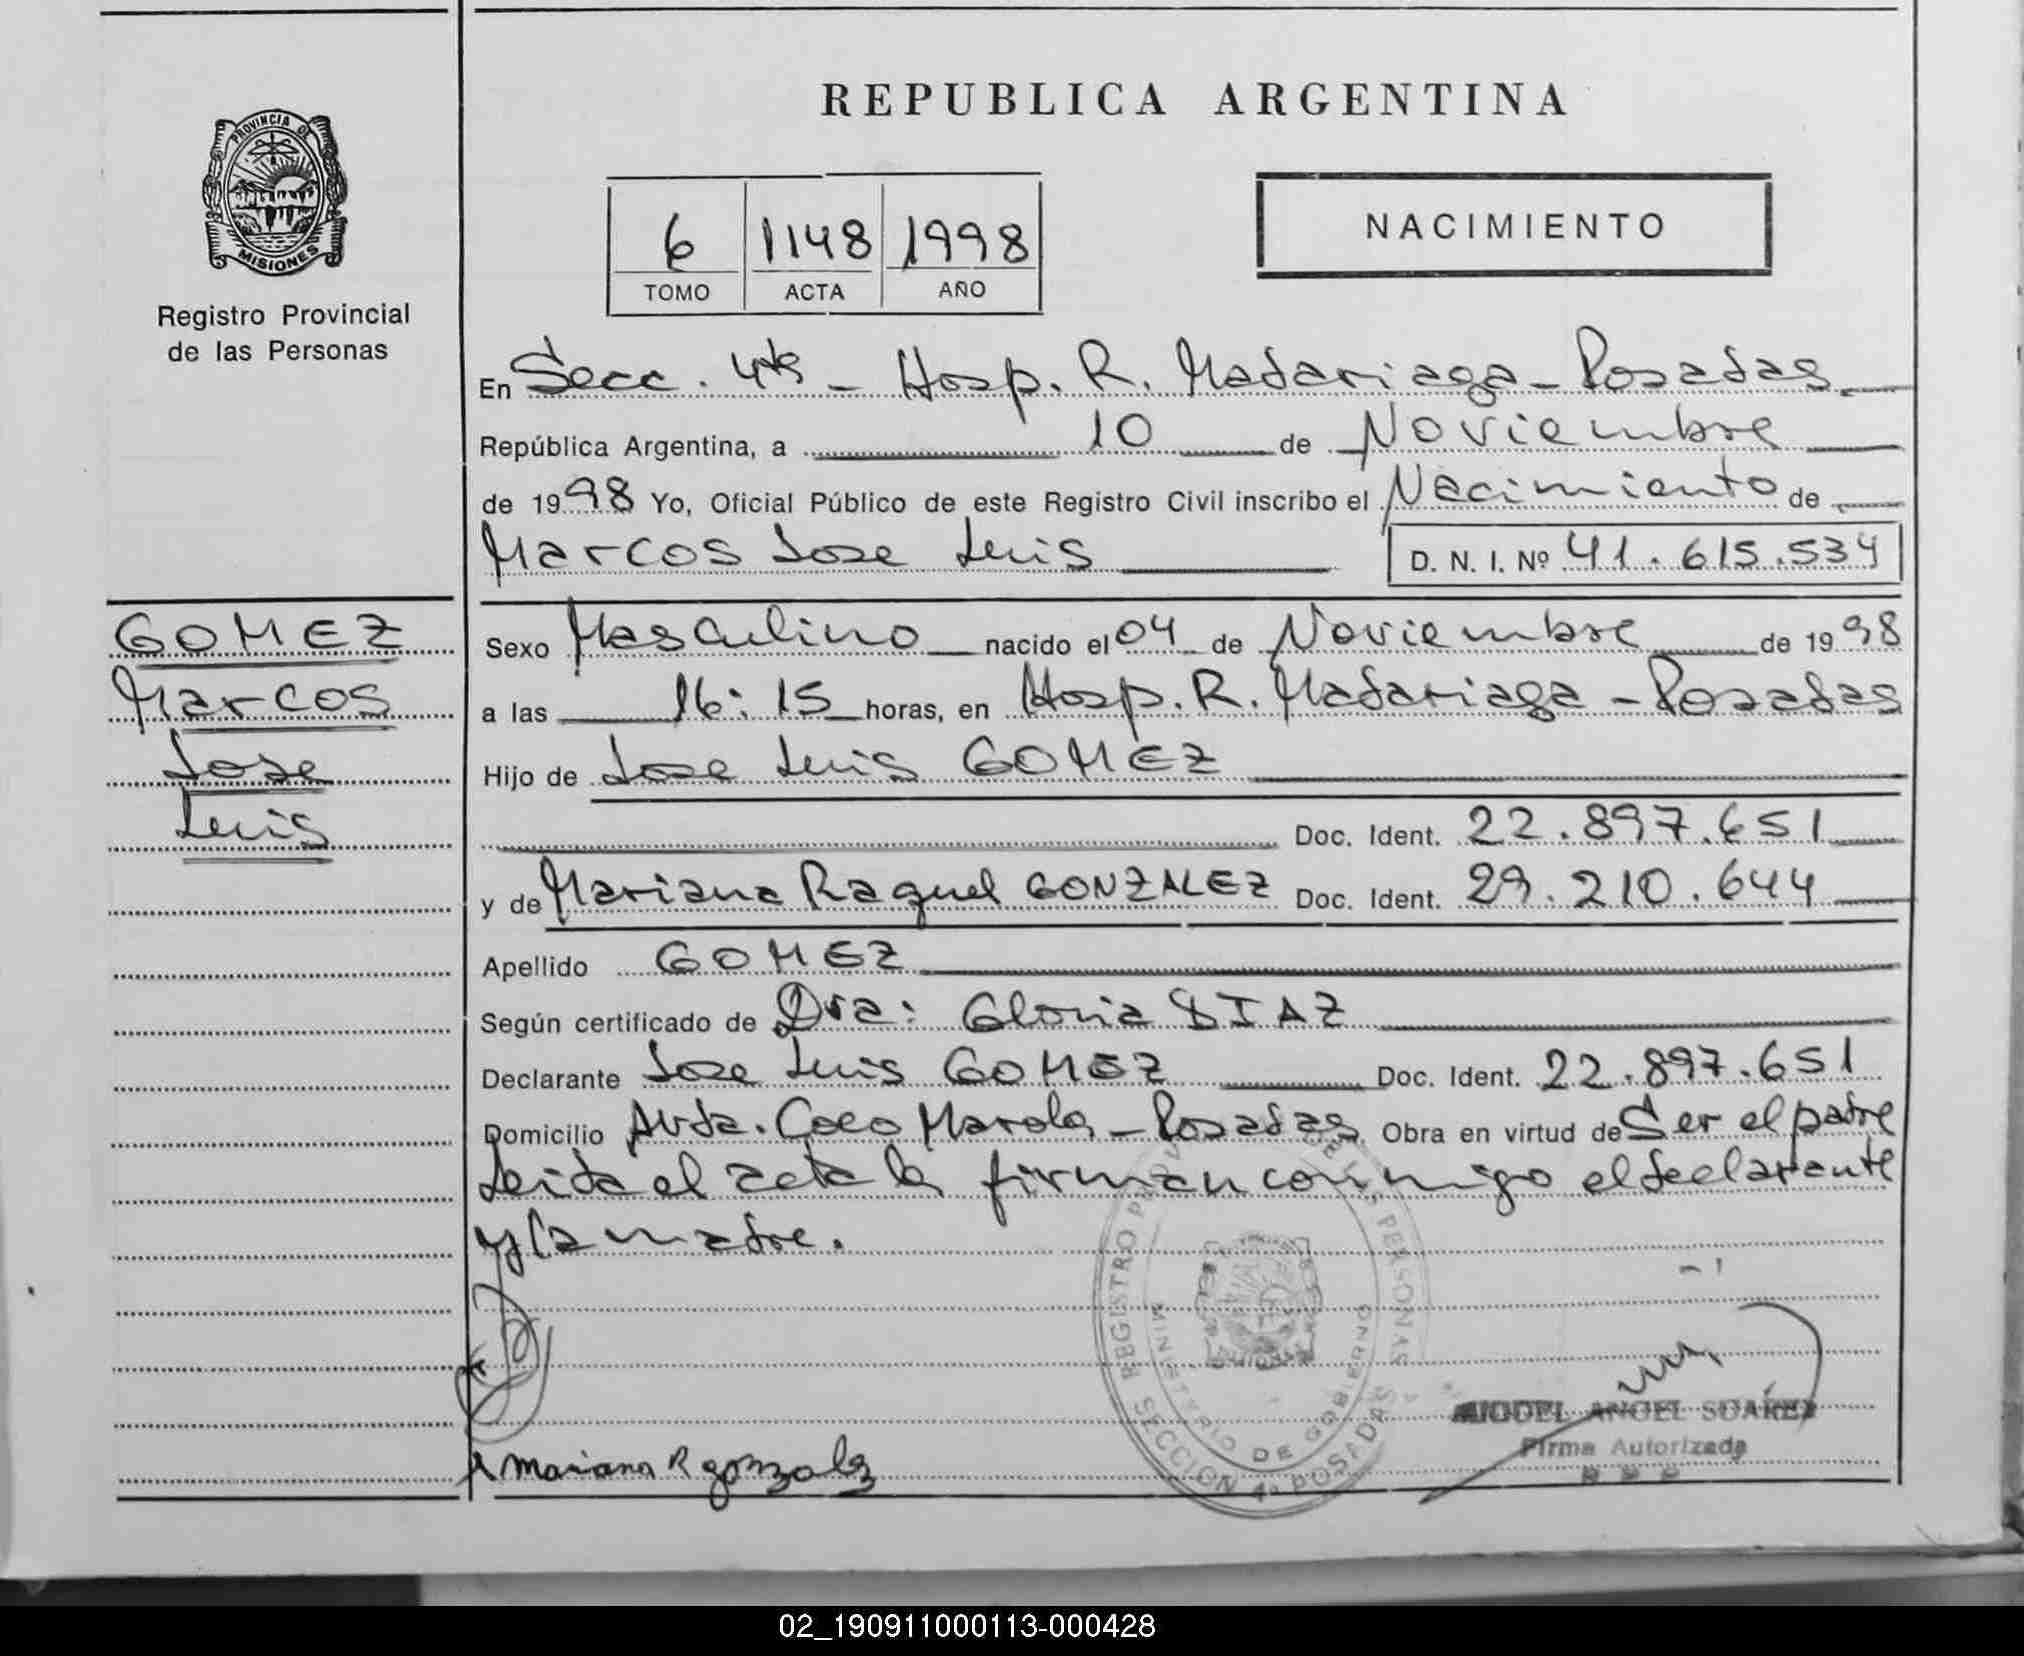 REPUBLICA ARGENTINA
PROVINCIA DE
MISIONES
Registro Provincial
de las Personas
6 1148 1998
TOMO ACTA AÑO
NACIMIENTO
En Secc. 4ta - Hosp. R. Madariaga - Posadas
República Argentina, a 10 de Noviembre
de 1998 Yo, Oficial Público de este Registro Civil inscribo el Nacimiento de
Marcos Jose Luis D. N. I. Nº 41.615.534
GOMEZ
Marcos
Jose
Luis
Sexo Masculino nacido el 04 de Noviembre de 1998
a las 16:15 horas, en Hosp. R. Madariaga - Posadas
Hijo de Jose Luis GOMEZ
Doc. Ident. 22.897.651
y de Mariana Raquel GONZALEZ Doc. Ident. 29.210.644
Apellido GOMEZ
Según certificado de Dra: Gloria DIAZ
Declarante Jose Luis GOMEZ Doc. Ident. 22.897.651
Domicilio Avda. Coco Marola - Posadas Obra en virtud de Ser el padre
Leida el acta la firman conmigo el declarante
y la madre.
REGISTRO PERSONAS
MINISTERIO DE GOBIERNO
SECCION 4a POSADAS
MIGUEL ANGEL SUAREZ
Firma Autorizada
Mariana R gonzalez
02_190911000113-000428